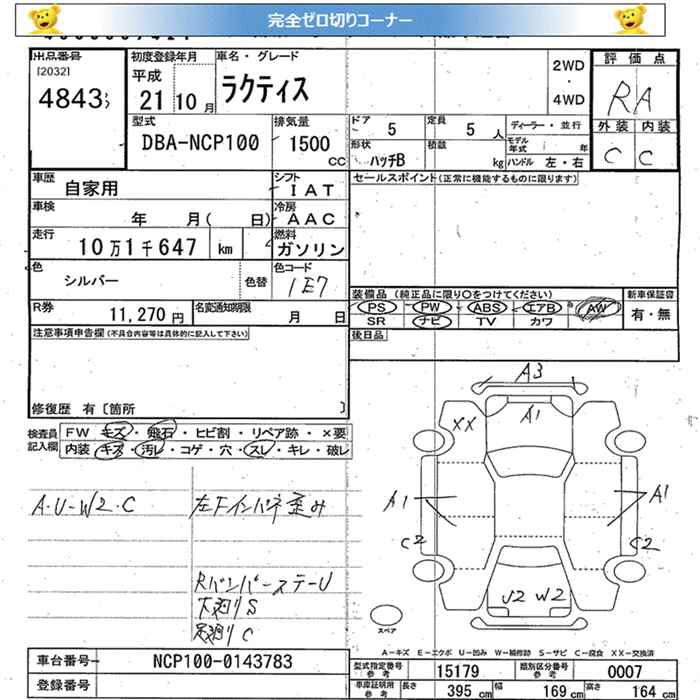 完全ゼロ切りコーナー
出品番号 [2032] 4843
初度登録年月 平成 21年 10月
車名・グレード ラクティス
2WD ・ 4WD
評価点 RA
外装 内装
C C
型式 DBA-NCP100
排気量 1500 CC
ドア 5 定員 5 人 ディーラー・並行
形状 ハッチB 積載 kg モデル年式 年 ハンドル 左・右
車歴 自家用
シフト IAT
セールスポイント(正常に機能するものに限ります)
車検 年 月( 日)
冷房 AAC
走行 10万1千647 km
燃料 ガソリン
色 シルバー 色替
色コード 1E7
装備品 (純正品に限り○をつけてください) 新車保証書
PS PW ABS エアB AW 有・無
SR ナビ TV カワ
R券 11,270円 名変通知期限 月 日
後日品
注意事項申告欄(不具合内容等は具体的に記入して下さい)
修復歴 有 [箇所 ]
検査員記入欄
FW キズ・飛石・ヒビ割・リペア跡・×要
内装 キズ・汚レ・コゲ・穴・スレ・キレ・破レ
A3
A1
XX
A1 A1
C2 C2
U2 W2
A・U・W2・C
左Fインパネ歪み
Rバンパーステー U
下廻り S
足廻り C
スペア
A－キズ E－エクボ U－凹み W－補修跡 S－サビ C－腐食 XX－交換済
車台番号 NCP100-0143783
登録番号
型式指定番号 参考 15179 類別区分番号 参考 0007
車庫証明用 参考 長さ 395 cm 幅 169 cm 高さ 164 cm